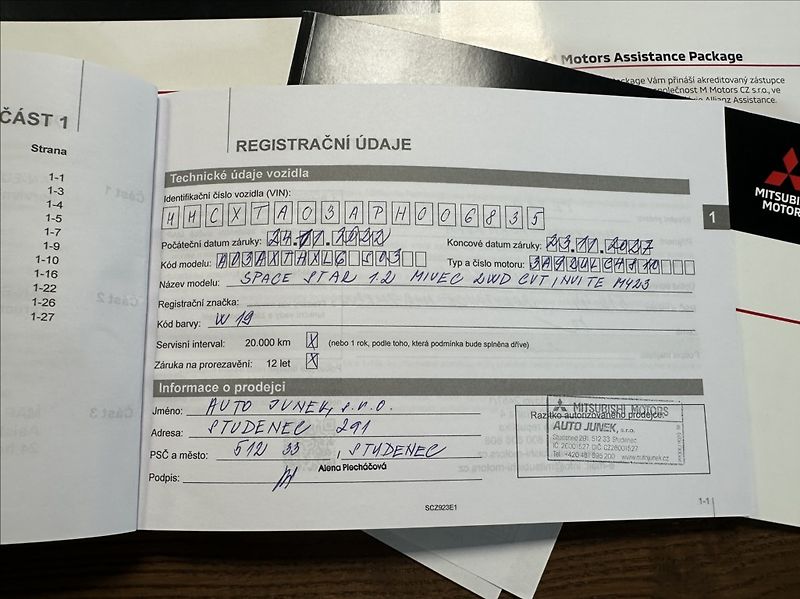 Motors Assistance Package
ackage Vám přináší akreditovaný zástupce
společnost M Motors CZ s.r.o., ve
Allianz Assistance.
MITSUBISHI
MOTOR
ČÁST 1
Strana
1-1
1-3
1-4
1-5
1-7
1-9
1-10
1-16
1-22
1-26
1-27
REGISTRAČNÍ ÚDAJE
Technické údaje vozidla
Identifikační číslo vozidla (VIN):
MMCXTA03APH006835
1
Počáteční datum záruky: 24.11.2022 Koncové datum záruky: 23.11.2027
Kód modelu: A03AXTHXL6 S93 Typ a číslo motoru:
Název modelu: SPACE STAR 1.2 MIVEC 2WD CVT, INVITE MY23
Registrační značka:
Kód barvy: W19
Servisní interval: 20.000 km X (nebo 1 rok, podle toho, která podmínka bude splněna dříve)
Záruka na prorezavění: 12 let X
Informace o prodejci
Jméno: AUTO JUNEK, s.r.o.
Adresa: STUDENEC 291
PSČ a město: 512 33, STUDENEC
Alena Plecháčová
Podpis:
Razítko autorizovaného prodejce:
MITSUBISHI MOTORS
AUTO JUNEK, s.r.o.
Studenec 291, 512 33 Studenec
IČ 26001527, DIČ CZ26001527
Tel.: +420 481 595 200 www.autojunek.cz
SCZ923E1
1-1